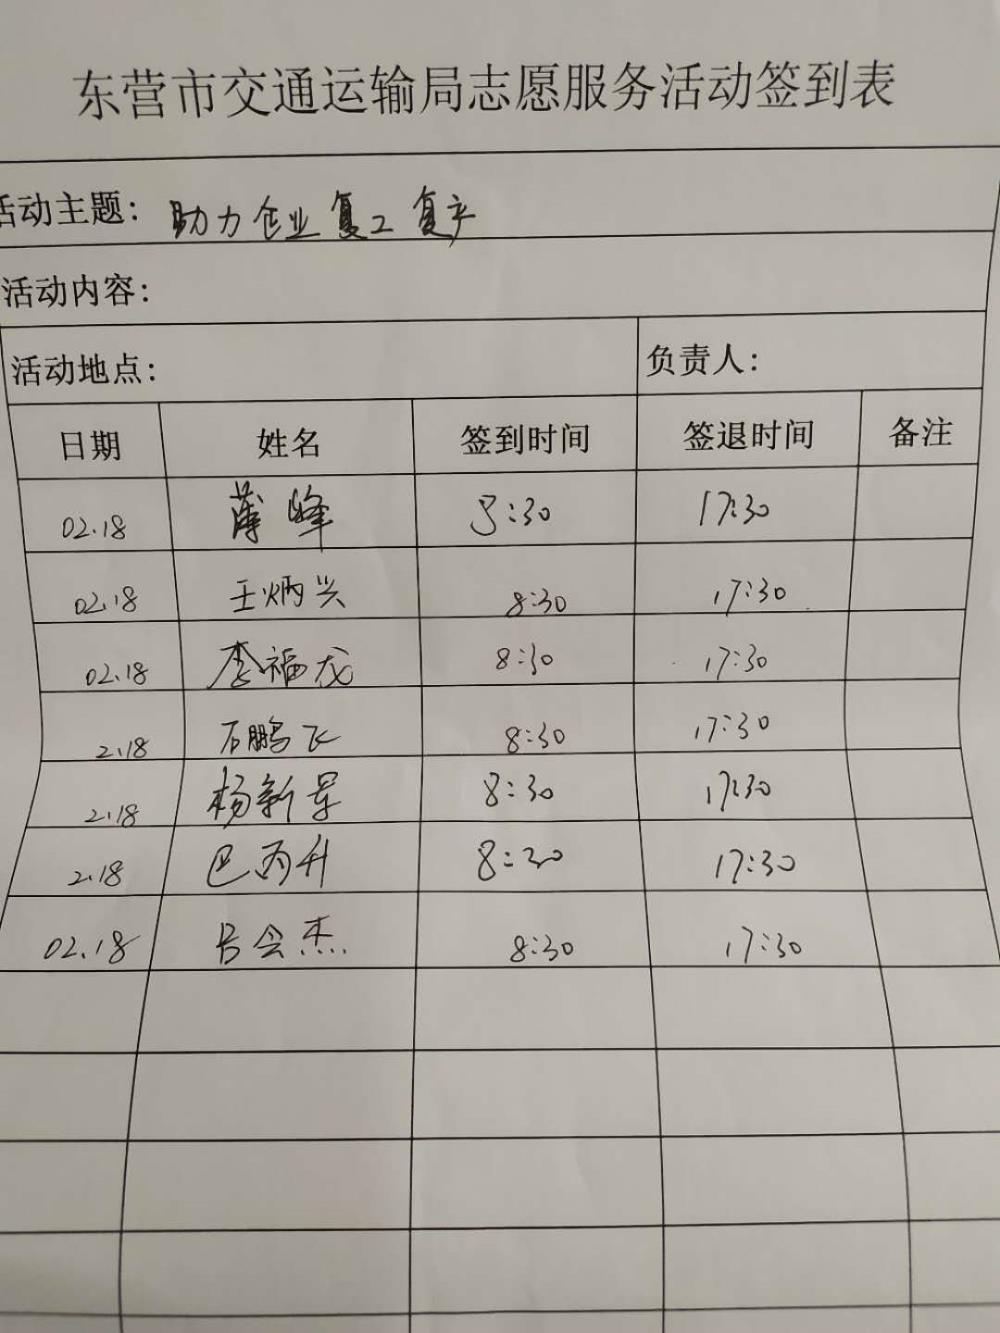 东营市交通运输局志愿服务活动签到表
活动主题：助力企业复工复产
活动内容：
活动地点： 负责人：
日期 姓名 签到时间 签退时间 备注
02.18 薄峰 8:30 17:30
02.18 王炳兴 8:30 17:30
02.18 李福龙 8:30 17:30
2.18 石鹏飞 8:30 17:30
2.18 杨新军 8:30 17:30
2.18 巴丙升 8:30 17:30
02.18 吕会杰 8:30 17:30